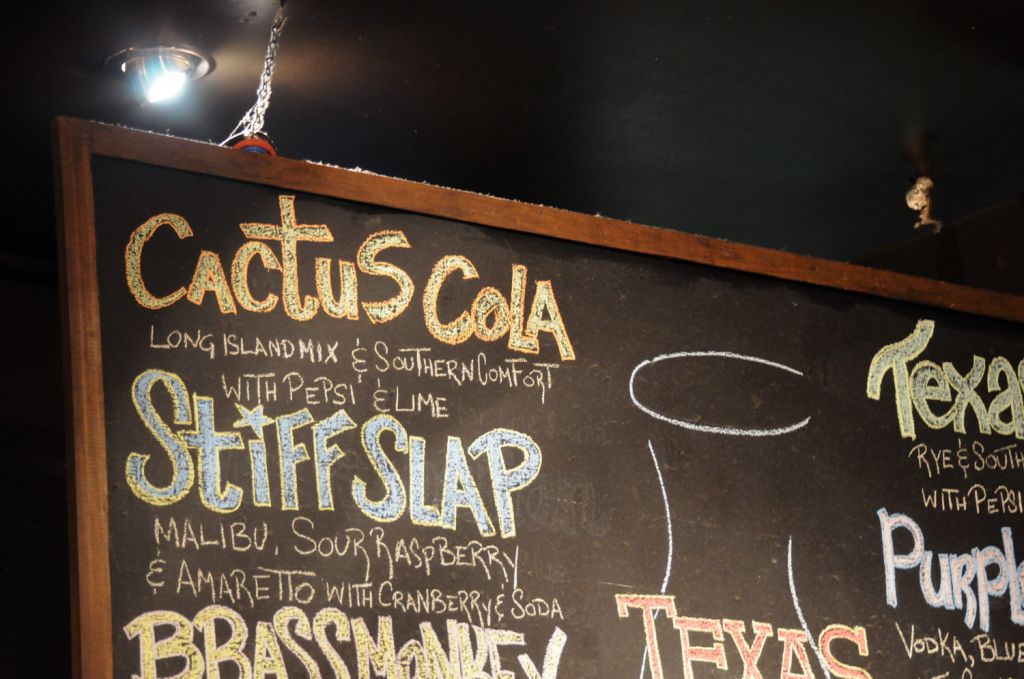 CACTUS COLA
LONG ISLAND MIX & SOUTHERN COMFORT
WITH PEPSI & LIME
STIFF SLAP
MALIBU, SOUR RASPBERRY
& AMARETTO WITH CRANBERRY & SODA
BRASS MONKEY
TEXAS
TEXAS
RYE & SOUTH
WITH PEPSI
PURPL
VODKA, BLUE